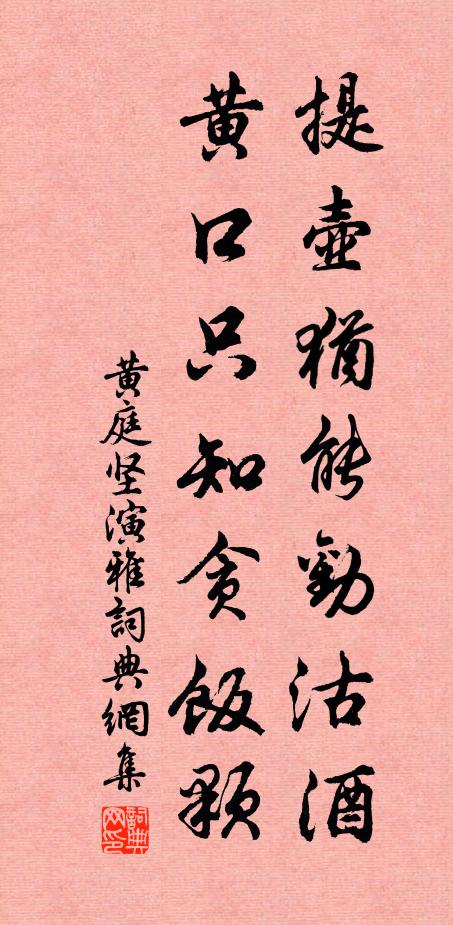 提壺猶能勸沽酒
黄口只知貪飯顆
黄庭坚演雅詞典網集
詞典网印